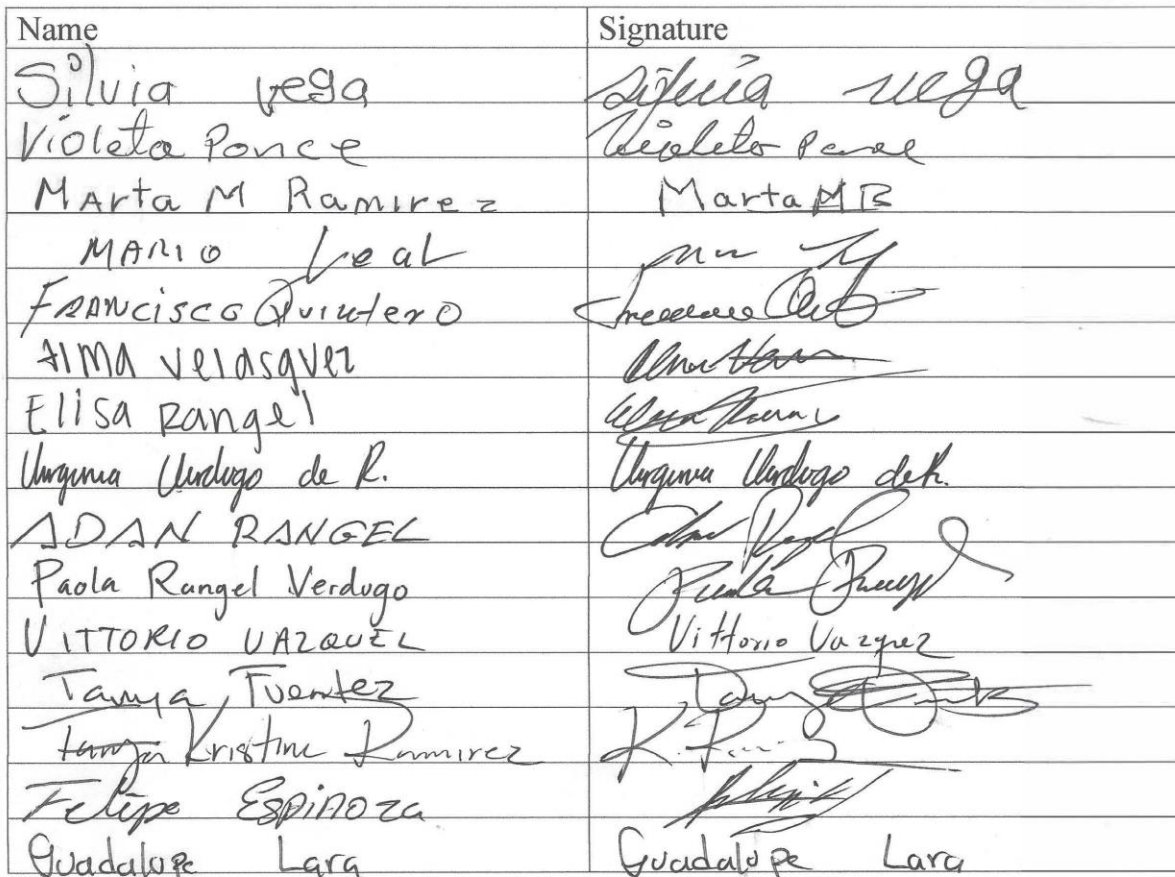 Name Signature
Silvia Vega Silvia Vega
Violeta Ponce Violeta Ponce
MArta M Ramirez Marta MR
MARIO Leal
FRANCISCO Quintero
Alma Velasquez
Elisa Rangel
Virginia Verdugo de R. Virginia Verdugo de R.
ADAN RANGEL Adan Rangel
Paola Rangel Verdugo Paola Rangel
VITTORIO VAZQUEZ Vittorio Vazquez
Tanya Fuentez
Tanya Kristine Ramirez
Felipe Espinoza
Guadalupe Lara Guadalupe Lara